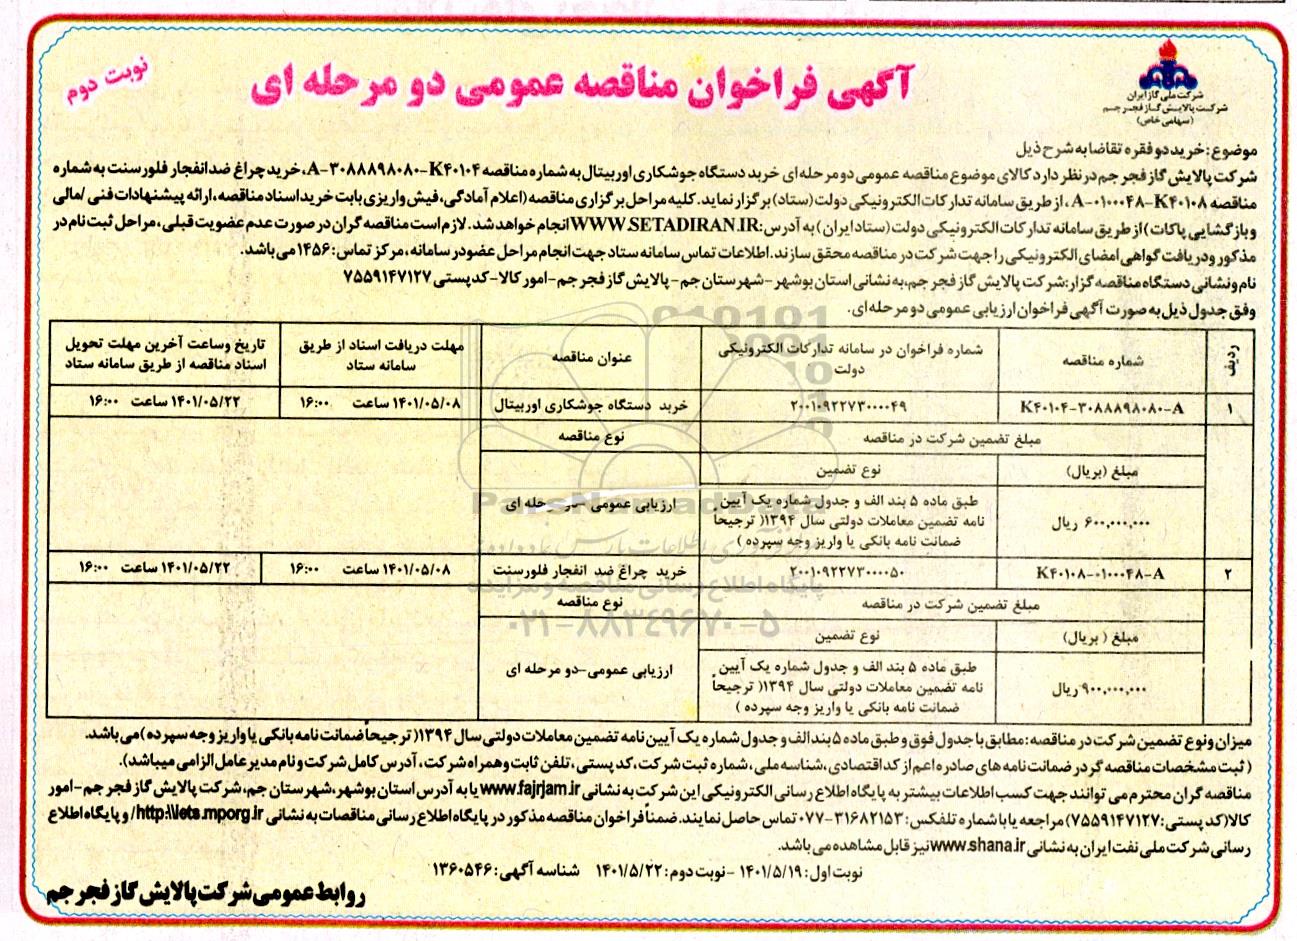 نوبت دوم
آگهی فراخوان مناقصه عمومی دو مرحله ای
شرکت ملی گاز ایران
شرکت پالایش گاز فجر جم
(سهامی خاص)
موضوع: خرید دو فقره تقاضا به شرح ذیل
شرکت پالایش گاز فجر جم در نظر دارد کالای موضوع مناقصه عمومی دو مرحله ای خرید دستگاه جوشکاری اوربیتال به شماره مناقصه A-۳۰۸۸۸۹۸۰۸۰-K۴۰۱۰۴، خرید چراغ ضد انفجار فلورسنت به شماره
مناقصه A-۰۱۰۰۰۴۸-K۴۰۱۰۸ ، از طریق سامانه تدارکات الکترونیکی دولت (ستاد) برگزار نماید. کلیه مراحل برگزاری مناقصه (اعلام آمادگی، فیش واریزی بابت خرید اسناد مناقصه، ارائه پیشنهادات فنی /مالی
و بازگشایی پاکات) از طریق سامانه تدارکات الکترونیکی دولت (ستاد ایران ) به آدرس: WWW.SETADIRAN.IR انجام خواهد شد. لازم است مناقصه گران در صورت عدم عضویت قبلی، مراحل ثبت نام در
مذکور و دریافت گواهی امضای الکترونیکی را جهت شرکت در مناقصه محقق سازند. اطلاعات تماس سامانه ستاد جهت انجام مراحل عضو در سامانه ، مرکز تماس: ۱۴۵۶ می باشد.
نام و نشانی دستگاه مناقصه گزار: شرکت پالایش گاز فجر جم، به نشانی استان بوشهر - شهرستان جم - پالایش گاز فجر جم - امور کالا - کد پستی ۷۵۵۹۱۴۷۱۲۷
وفق جدول ذیل به صورت آگهی فراخوان ارزیابی عمومی دو مرحله ای.
ردیف
شماره مناقصه
شماره فراخوان در سامانه تدارکات الکترونیکی دولت
عنوان مناقصه
مهلت دریافت اسناد از طریق سامانه ستاد
تاریخ وساعت آخرین مهلت تحویل اسناد مناقصه از طریق سامانه ستاد
۱
K۴۰۱۰۴-۳۰۸۸۸۹۸۰۸۰-A
۲۰۰۱۰۹۲۲۷۳۰۰۰۰۴۹
خرید دستگاه جوشکاری اوربیتال
۱۴۰۱/۰۵/۰۸ ساعت ۱۶:۰۰
۱۴۰۱/۰۵/۲۲ ساعت ۱۶:۰۰
مبلغ تضمین شرکت در مناقصه
نوع مناقصه
مبلغ (بریال)
نوع تضمین
۶۰۰,۰۰۰,۰۰۰ ریال
طبق ماده ۵ بند الف و جدول شماره یک آیین
نامه تضمین معاملات دولتی سال ۱۳۹۴( ترجیحاً
ضمانت نامه بانکی یا واریز وجه سپرده )
ارزیابی عمومی -دو مرحله ای
۲
K۴۰۱۰۸-۰۱۰۰۰۴۸-A
۲۰۰۱۰۹۲۲۷۳۰۰۰۰۵۰
خرید چراغ ضد انفجار فلورسنت
۱۴۰۱/۰۵/۰۸ ساعت ۱۶:۰۰
۱۴۰۱/۰۵/۲۲ ساعت ۱۶:۰۰
مبلغ تضمین شرکت در مناقصه
نوع مناقصه
مبلغ ( بریال)
نوع تضمین
۹۰۰,۰۰۰,۰۰۰ ریال
طبق ماده ۵ بند الف و جدول شماره یک آیین
نامه تضمین معاملات دولتی سال ۱۳۹۴( ترجیحاً
ضمانت نامه بانکی یا واریز وجه سپرده )
ارزیابی عمومی-دو مرحله ای
ParsNamadData
پایگاه اطلاع رسانی مناقصه و مزایده
۰۲۱-۸۸۳۴۹۶۷۰-۵
میزان و نوع تضمین شرکت در مناقصه: مطابق با جدول فوق و طبق ماده ۵ بند الف و جدول شماره یک آیین نامه تضمین معاملات دولتی سال ۱۳۹۴( ترجیحاً ضمانت نامه بانکی یا واریز وجه سپرده ) می باشد.
( ثبت مشخصات مناقصه گر در ضمانت نامه های صادره اعم از کد اقتصادی ، شناسه ملی ، شماره ثبت شرکت ، کد پستی ، تلفن ثابت و همراه شرکت ، آدرس کامل شرکت و نام مدیر عامل الزامی میباشد).
مناقصه گران محترم می توانند جهت کسب اطلاعات بیشتر به پایگاه اطلاع رسانی الکترونیکی این شرکت به نشانی www.fajrjam.ir یا به آدرس استان بوشهر، شهرستان جم، شرکت پالایش گاز فجر جم - امور
کالا (کد پستی: ۷۵۵۹۱۴۷۱۲۷) مراجعه یا با شماره تلفکس: ۳۱۶۸۲۱۵۳-۰۷۷ تماس حاصل نمایند. ضمناً فراخوان مناقصه مذکور در پایگاه اطلاع رسانی مناقصات به نشانی http:\\iets.mporg.ir/ و پایگاه اطلاع
رسانی شرکت ملی نفت ایران به نشانی www.shana.ir نیز قابل مشاهده می باشد.
نوبت اول: ۱۴۰۱/۵/۱۹ - نوبت دوم: ۱۴۰۱/۵/۲۲ شناسه آگهی: ۱۳۶۰۵۴۶
روابط عمومی شرکت پالایش گاز فجر جم